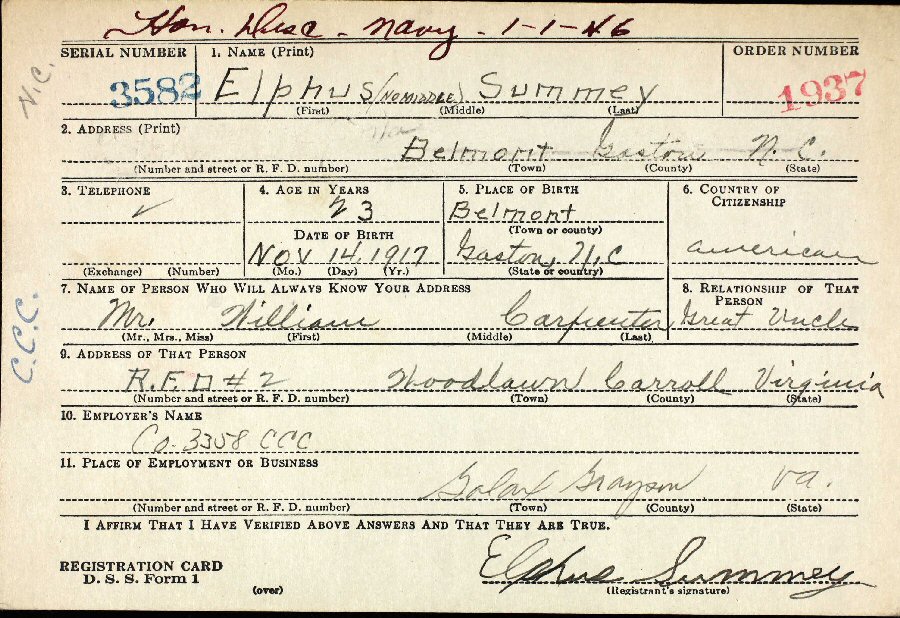 Hon. Disc - Navy - 1-1-46
SERIAL NUMBER 1. NAME (Print) ORDER NUMBER
3582 Elphus (NO MIDDLE) Summey 1937
(First) (Middle) (Last)
N.C.
2. ADDRESS (Print)
Belmont Gaston N.C.
(Number and street or R. F. D. number) (Town) (County) (State)
3. TELEPHONE 4. AGE IN YEARS 5. PLACE OF BIRTH 6. COUNTRY OF CITIZENSHIP
23 Belmont
DATE OF BIRTH (Town or county)
NOV 14, 1917 Gaston, N.C american
(Exchange) (Number) (Mo.) (Day) (Yr.) (State or country)
7. NAME OF PERSON WHO WILL ALWAYS KNOW YOUR ADDRESS 8. RELATIONSHIP OF THAT PERSON
Mr. William Carpenter Great Uncle
(Mr., Mrs., Miss) (First) (Middle) (Last)
C.C.C.
9. ADDRESS OF THAT PERSON
R.F.D #2 Woodlawn Carroll Virginia
(Number and street or R. F. D. number) (Town) (County) (State)
10. EMPLOYER'S NAME
Co. 3358 CCC
11. PLACE OF EMPLOYMENT OR BUSINESS
Galax Grayson Va.
(Number and street or R. F. D. number) (Town) (County) (State)
I AFFIRM THAT I HAVE VERIFIED ABOVE ANSWERS AND THAT THEY ARE TRUE.
REGISTRATION CARD
D. S. S. Form 1
(over)
Elphus Summey
(Registrant's signature)